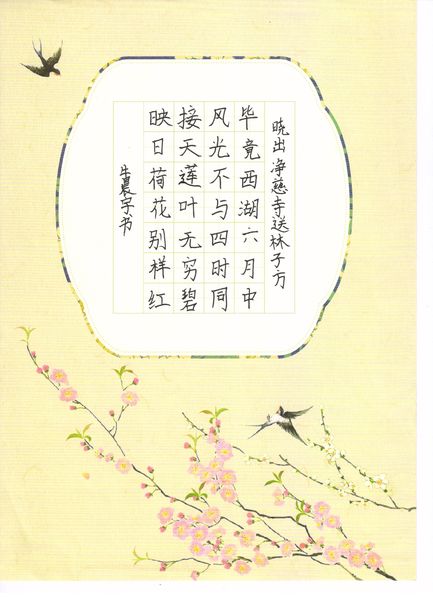 晓出净慈寺送林子方
毕竟西湖六月中
风光不与四时同
接天莲叶无穷碧
映日荷花别样红
牛晨宇书